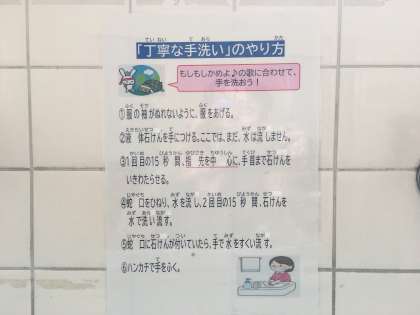 「丁寧な手洗い」のやり方
もしもしかめよ♪の歌に合わせて、
手を洗おう！
①服の袖がぬれないように、服をあげる。
②液体石けんを手につける。ここでは、まだ、水は流しません。
③1回目の15秒間、指先を中心に、手首まで石けんを
いきわたらせる。
④蛇口をひねり、水を流し、2回目の15秒間、石けんを
水で洗い流す。
⑤蛇口に石けんが付いていたら、手で水をすくい流す。
⑥ハンカチで手をふく。